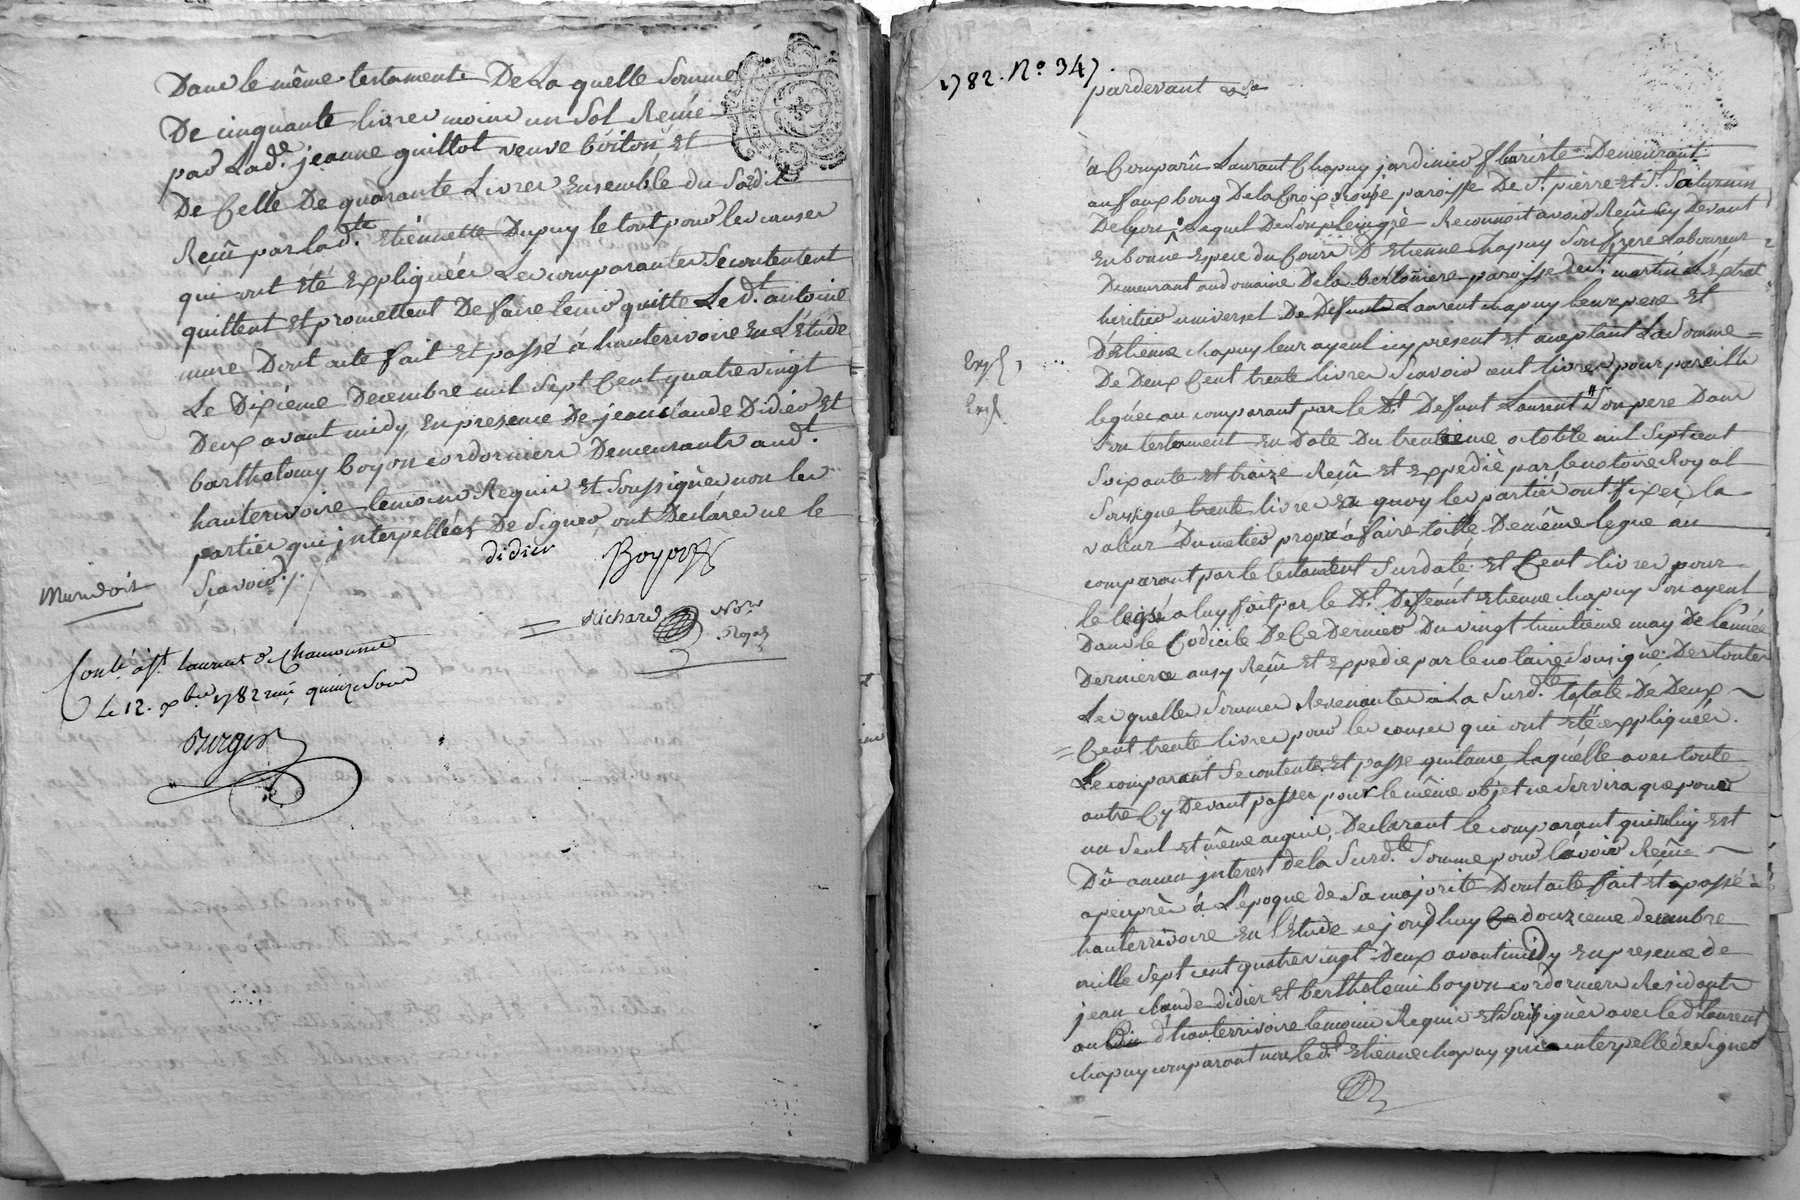 Dans le même testament De La quelle Somme
De cinquante livres moins un Sol Reçüe
par Lade. jeanne guillot veuve boiton et
De Celle De quarante Livres Ensemble du Sordit
Reçû par lad.te Etiennette Dupuy le tout pour les causes
qui ont été Expliquées Les comparantes Se contentent
quittent et promettent De faire tenir quitte Le d.t antoine
mure Dont acte fait Et passé à hauterivoire En L'étude
Le Dixieme Decembre mil Sept Cent quatre vingt =
Deux avant midy En presence De jean claude Didier Et
barthelemy boyon cordonniers Demeurants aud.t
hauterivoire temoins Requis et Soussignés non les
parties qui interpellées De Signer ont Declarées ne le
Sçavoir ./.
didier Boyon
Richard Not.re Royal
Con.lé à S.t Laurent d Chamousset
Le 12. xbre 1782 reçu quinze Sous
1782. N.o 347.
pardevant
à Comparû Laurant Chapuy jardinier fleuriste Demeurant
au faux bourg De la Croix rousse paroisse De S.t pierre et S.t Saturnin
De lyon, Lequel De Son plein gré Reconnoit avoir Reçû Cy Devant
En bonne Espece du Cours D Etienne chapuy Son frere Laboureur
Demeurant au domaine De la bertonniere paroisse de S.t martin Lestrat
heritier universel De Defunts Laurent chapuy leur pere Et
D'Etienne chapuy leur ayeul icy present et acceptant La Somme =
De Deux Cent trente livres Scavoir cent livres pour pareille
leguée au comparant par le d.t Defunt Laurent Son pere Dans
Son testament En Date Du trentieme octobre mil Sept cent
Soixante et treize Reçû Et Expedié par le notaire Royal
Sousigné trente livres En quoy les parties ont fixer la
valeur Du metier propre à faire toille De même legué au
comparant par le testament Surdaté. Et Cent livres pour
le legs a luy fait par le d.t Defunt Etienne chapuy Son ayeul
Dans le Codicile De Ce Dernier Du vingt huitieme may De l'année
Derniere aussy Reçû Et Expedié par le notaire Sousigné. Des toutes
Les quelles Sommes Revenantes à La Surd.te totale De Deux
= Cent trente livres pour les causes qui ont été expliquées.
Le comparant Se contente Et passe quitance, laquelle avec toute
autre Cy Devant passée pour le même objet ne Servira que pour
un Seul et même acquit, Declarant le comparant qu'il luy Est
Dû aucun interest de la Surd.te Somme pour l'avoir Reçûe
a peu près à L'epoque de Sa majorité Dont acte fait Et passé à
hauterrivoire En l'Etude ce jourd'huy douzieme decembre
mille Sept cent quatre vingt Deux avant midy En presence de
jean claude didier Et berthelemi boyon cordonniers Residants
au d'hauterrivoire temoins Requis et Sousignés avec led. Laurent
chapuy comparant non led.t Etienne chapuy qui a interpellé de Signer